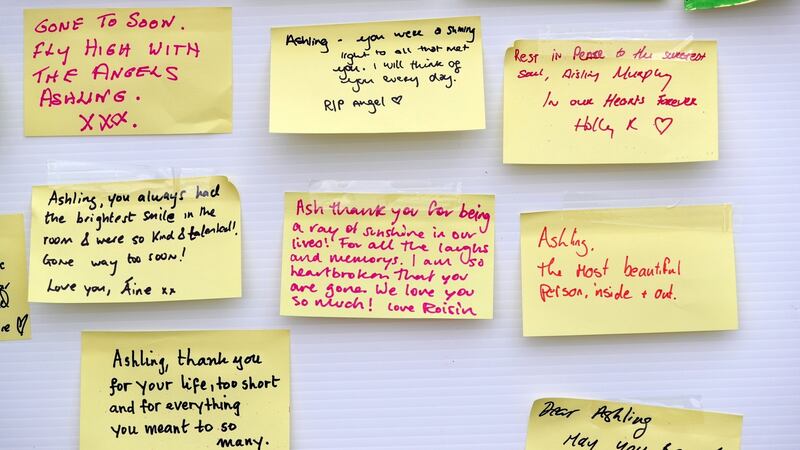 GONE TO SOON.
FLY HIGH WITH
THE ANGELS
ASHLING.
XXX.
Ashling - you were a shining
light to all that met
you. I will think of
you every day.
RIP Angel ♡
Rest in Peace to the sweetest
soul, Aisling Murphy
In our Hearts Forever
Holly X ♡
Ashling, you always had
the brightest smile in the
room & were so kind & talented!
Gone way too soon!
Love you, Áine xx
Ash thank you for being
a ray of sunshine in our
lives! For all the laughs
and memorys. I am so
heartbroken that you
are gone. We love you
so much! Love Roisin
Ashling.
The most beautiful
person, inside + out.
Ashling, thank you
for your life, too short
and for everything
you meant to so
many.
Dear Ashling
May you